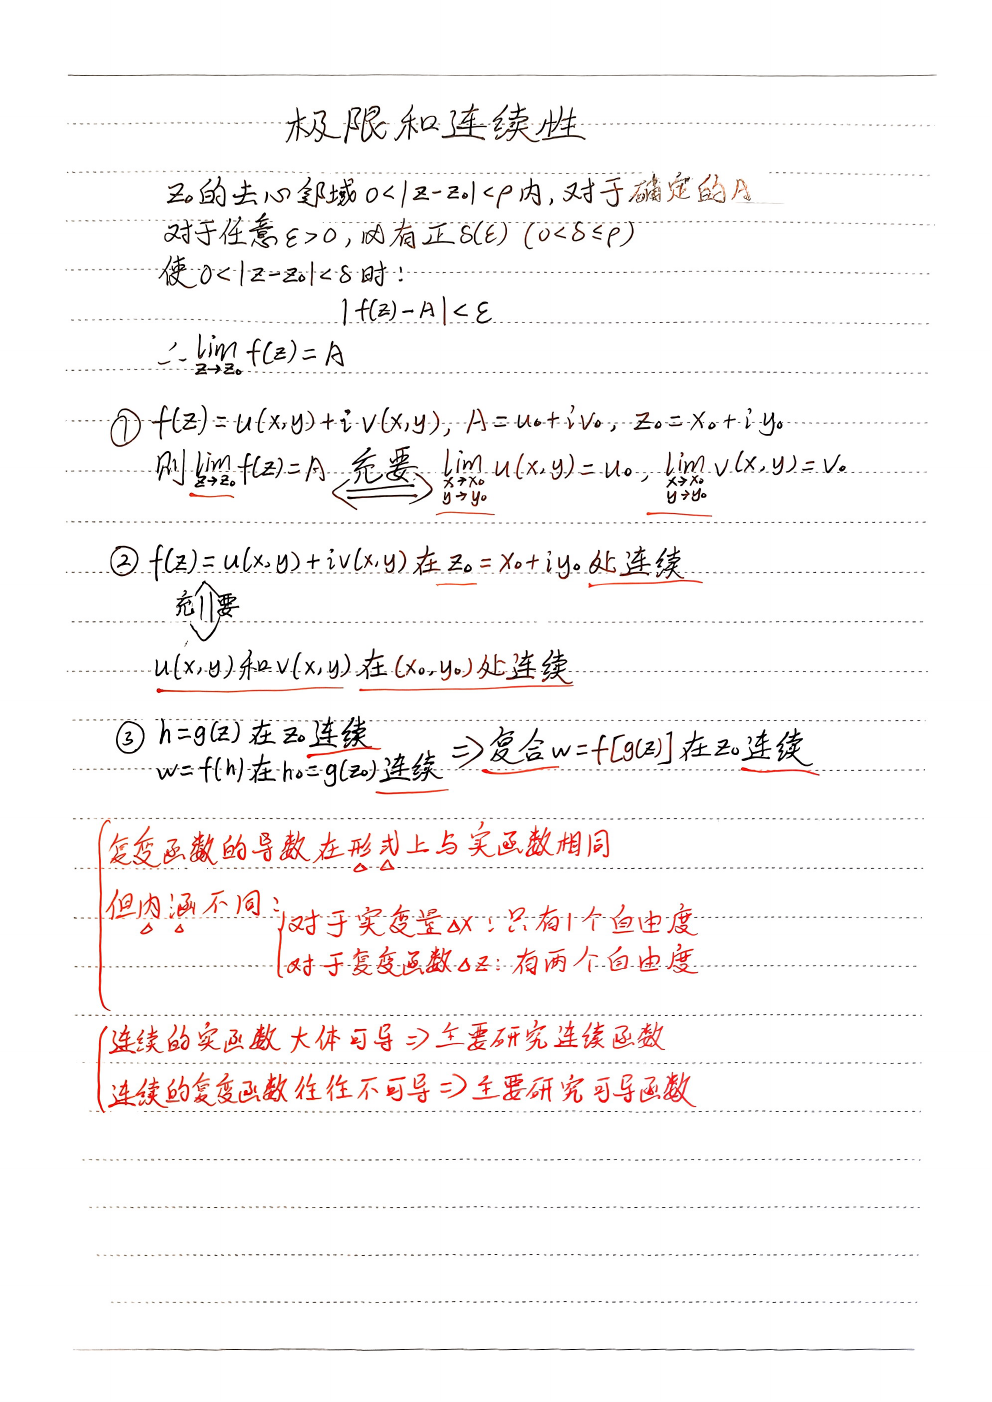 极限和连续性
z₀的去心邻域0<|z-z₀|<ρ内,对于确定的A
对于任意ε>0,必有正δ(ε) (0<δ≤ρ)
使0<|z-z₀|<δ时:
|f(z)-A|<ε
∴ lim z→z₀ f(z)=A
① f(z)=u(x,y)+iv(x,y), A=u₀+iv₀, z₀=x₀+iy₀
则 lim z→z₀ f(z)=A 充要⟺ lim x→x₀ y→y₀ u(x,y)=u₀, lim x→x₀ y→y₀ v(x,y)=v₀
② f(z)=u(x,y)+iv(x,y)在z₀=x₀+iy₀处连续
充⇕要
u(x,y)和v(x,y)在(x₀,y₀)处连续
③ h=g(z)在z₀连续
w=f(h)在h₀=g(z₀)连续 ⇒复合w=f[g(z)]在z₀连续
复变函数的导数在形式上与实函数相同
但内涵不同:
对于实变量Δx:只有1个自由度
对于复变函数Δz:有两个自由度
连续的实函数大体可导⇒主要研究连续函数
连续的复变函数往往不可导⇒主要研究可导函数